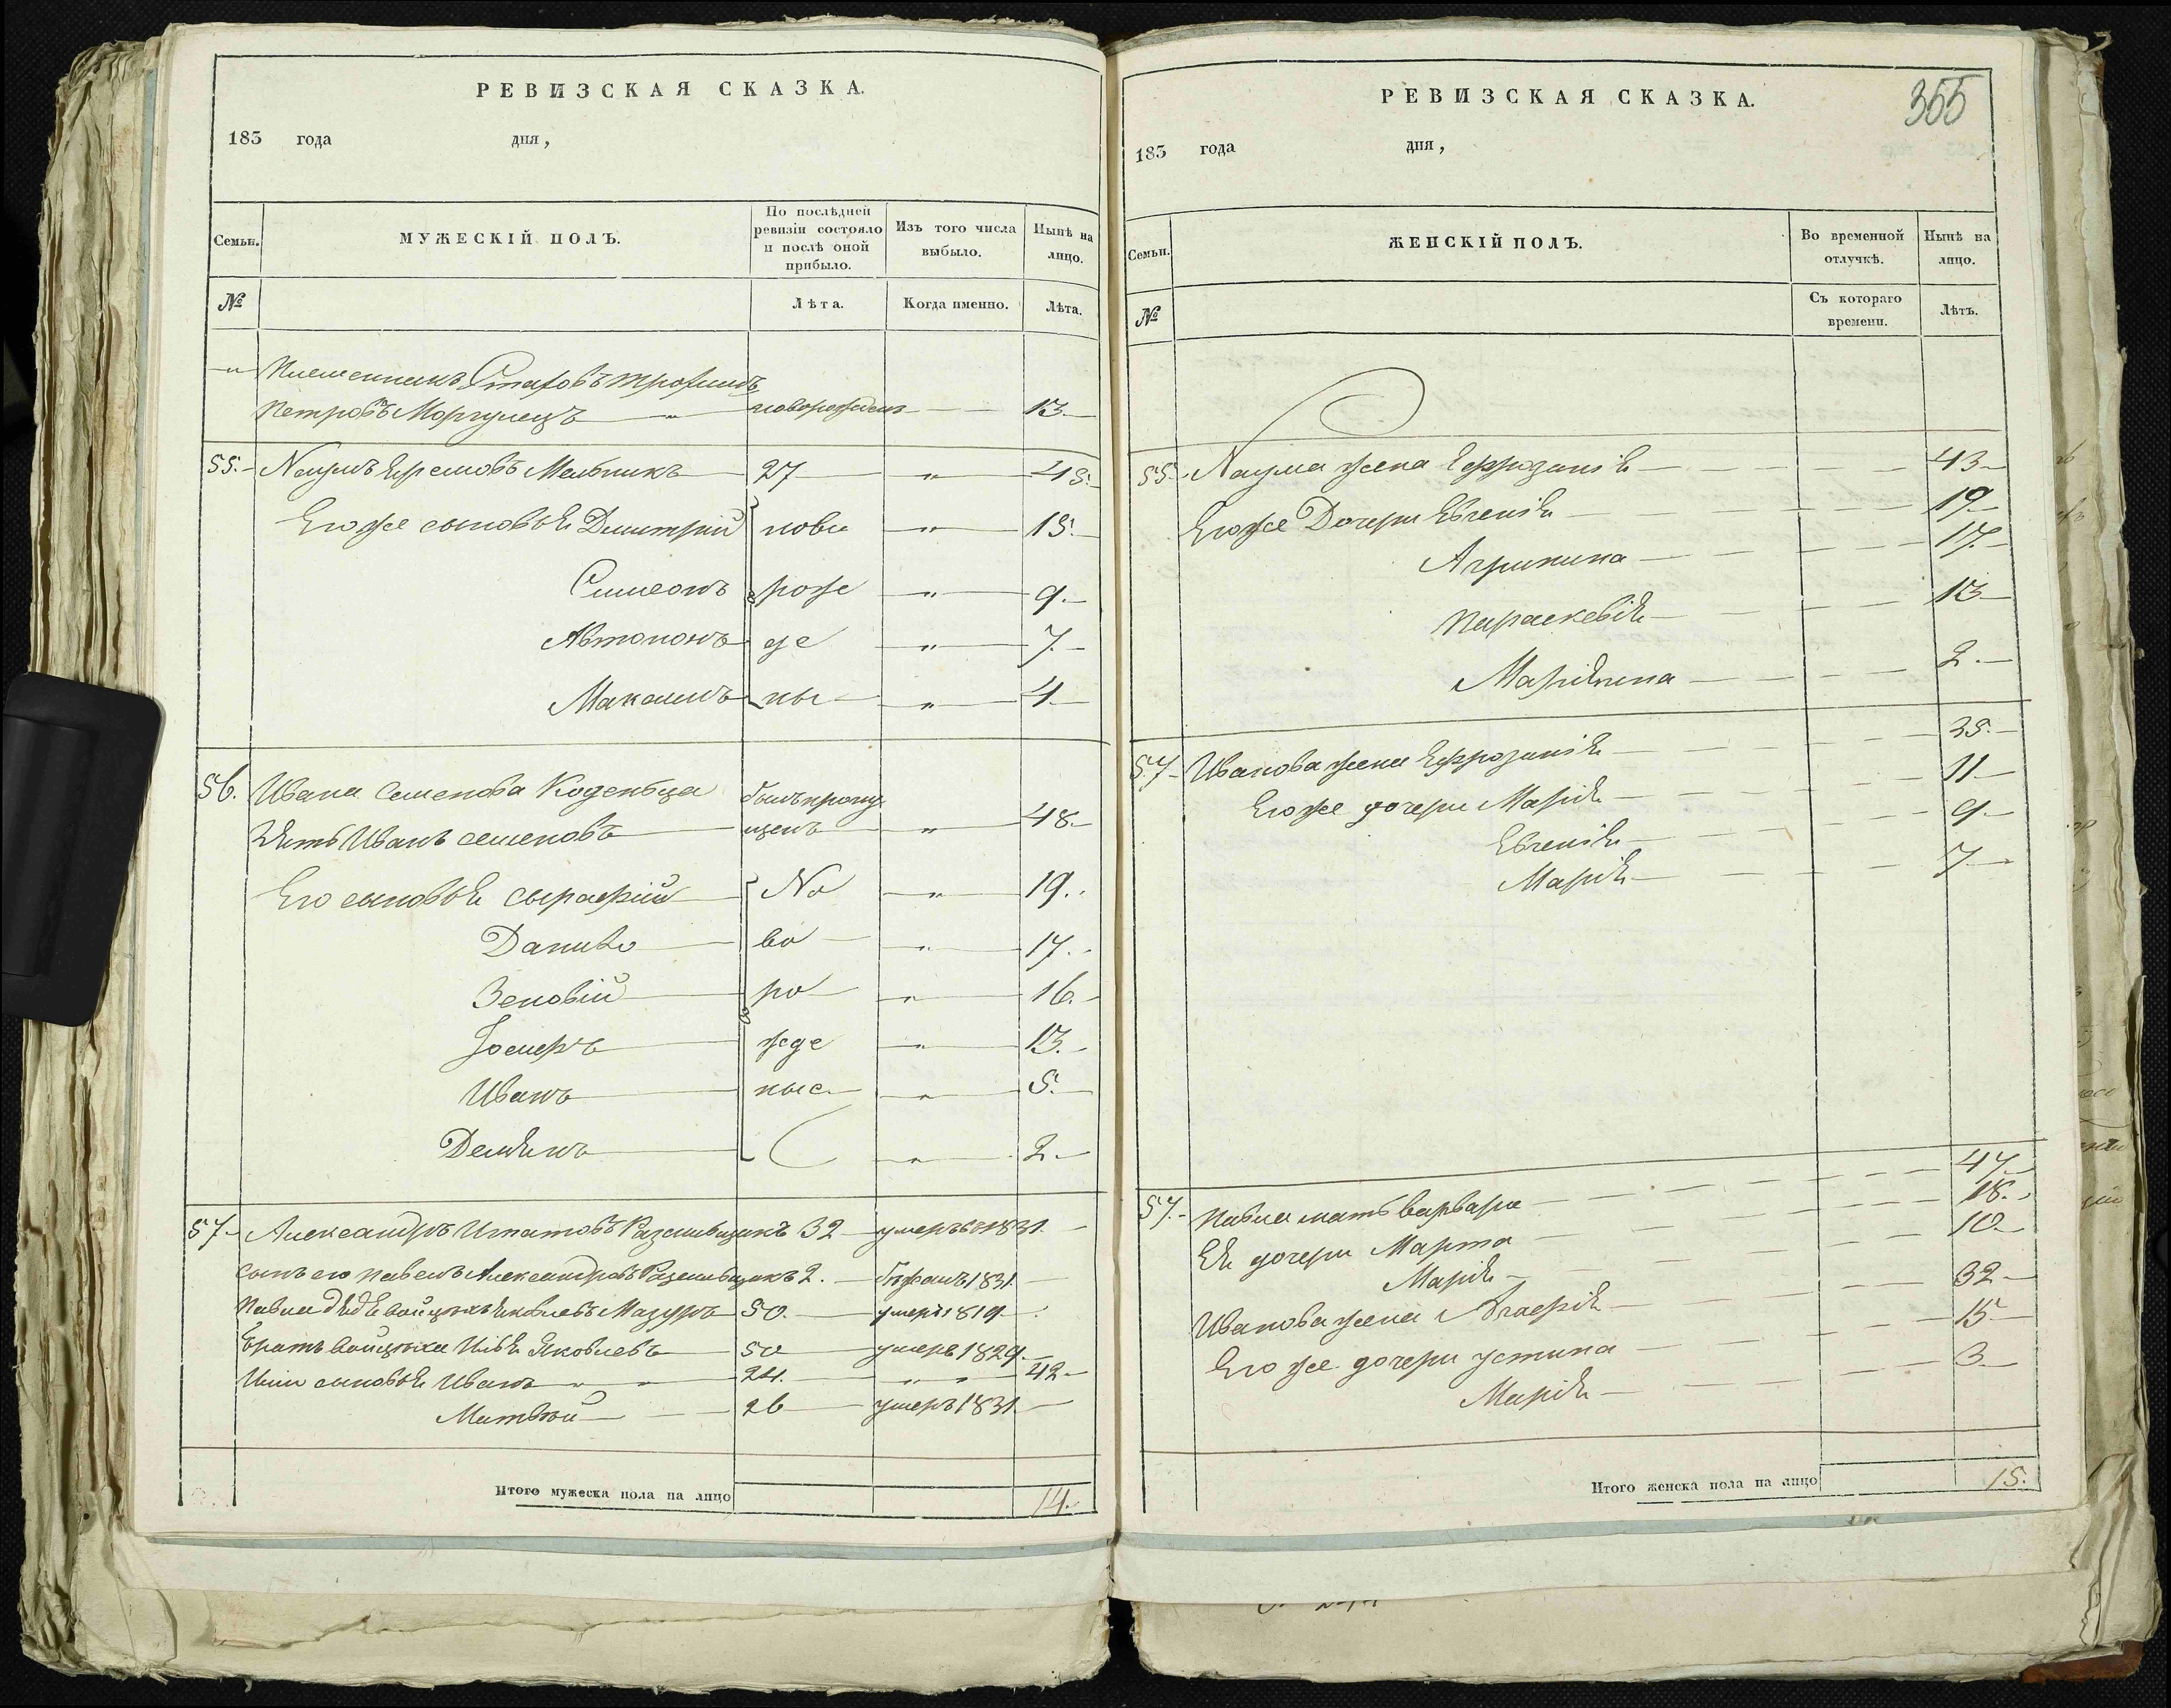 РЕВИЗСКАЯ СКАЗКА.
183 года дня,
Семьи. МУЖЕСКІЙ ПОЛЪ. По послѣдней ревизіи состояло и послѣ оной прибыло. Изъ того числа выбыло. Нынѣ на лицо.
№ Лѣта. Когда именно. Лѣта.
Племенникъ Трофимъ
Петровъ новорожден 13.
55. Наумъ Ефремовъ Мельникъ 27 " 45.
Его же сыновья Димитрий ново " 15.
Симеонъ рож " 9.
Автономъ де " 7.
Максимъ ны " 4
56. Ивана Семенова был пропу
Зять Иванъ Семеновъ щенъ " 48.
Его сыновья No " 19.
Данило во " 17.
Зеновій ро " 16.
Іосифъ жде " 13.
Иванъ ные " 5.
Демянъ " 2.
57. Александръ Игнатовъ 32 умеръ в 1831.
сынъ его Павелъ Александровъ 2. бѣжалъ 1831.
Павла дядя Войцѣхъ Яковлевъ Мазуръ 50. умеръ 1819.
Братъ Войцѣха Илья Яковлевъ 50 умеръ 1829.
Ильи сыновья Иванъ " " 24. " " 42.
Матвѣй 26 умеръ 1831.
Итого мужеска пола на лицо 14.
РЕВИЗСКАЯ СКАЗКА. 355
183 года дня,
Семьи. ЖЕНСКІЙ ПОЛЪ. Во временной отлучкѣ. Нынѣ на лицо.
№ Съ котораго времени. Лѣтъ.
55. Наума жена Ефрозинія 43
Его же Дочери Евгенія 19
Агрипина 17.
Параскевія 13
Маріянна 2.
57. Иванова жена Ефрозинія 35.
Его же дочери Марія 11
Евгенія 9.
Марія 7
57. Павла мать Варвара 47.
Ея дочери Марта 18.
Марія 10.
Иванова жена Агафія 32
Его же дочери Устина 15
Марія 3
Итого женска пола на лицо 15.